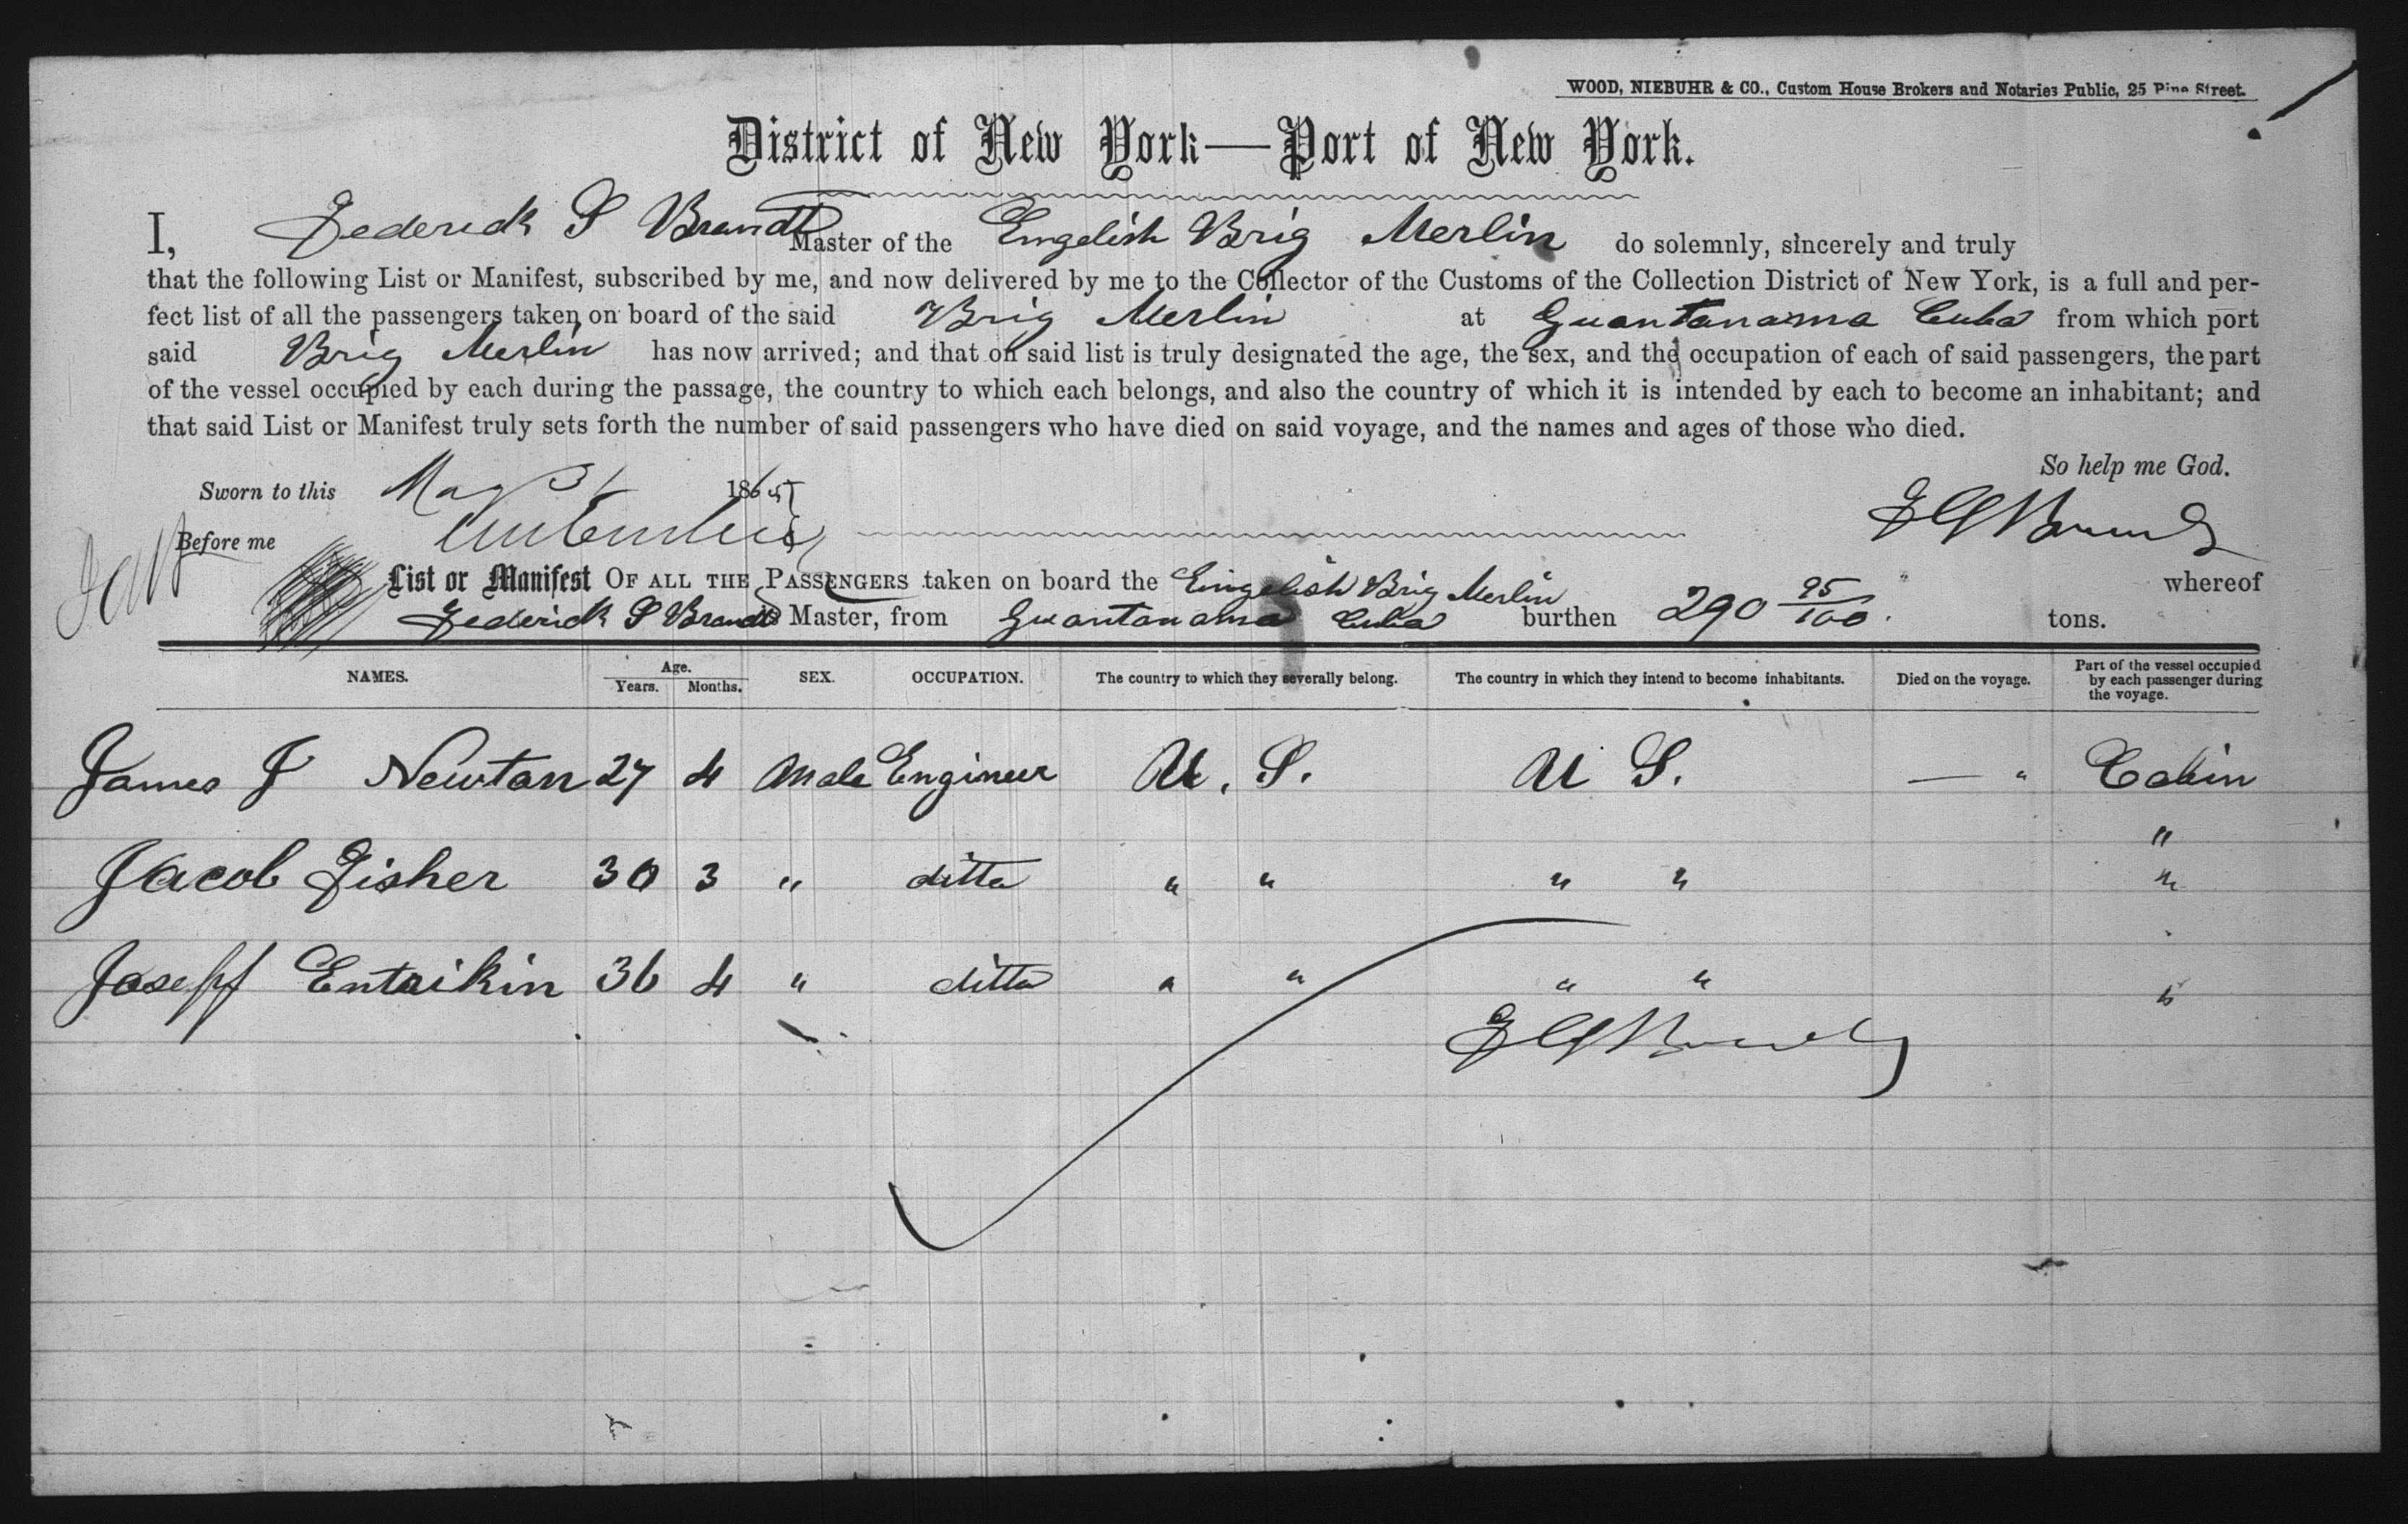 WOOD, NIEBUHR & CO., Custom House Brokers and Notaries Public, 25 Pine Street.
District of New York—Port of New York.
I, Federick S Brandt Master of the Engelish Brig Merlin do solemnly, sincerely and truly
that the following List or Manifest, subscribed by me, and now delivered by me to the Collector of the Customs of the Collection District of New York, is a full and per-
fect list of all the passengers taken on board of the said Brig Merlin at Guantanama Cuba from which port
said Brig Merlin has now arrived; and that on said list is truly designated the age, the sex, and the occupation of each of said passengers, the part
of the vessel occupied by each during the passage, the country to which each belongs, and also the country of which it is intended by each to become an inhabitant; and
that said List or Manifest truly sets forth the number of said passengers who have died on said voyage, and the names and ages of those who died.
So help me God.
Sworn to this May 31 1865
Before me
List or Manifest OF ALL THE PASSENGERS taken on board the Eingelish Brig Merlin whereof
Federick S Brandt is Master, from Guantanama Cuba burthen 290 95/100 tons.
NAMES. Age. Years. Months. SEX. OCCUPATION. The country to which they severally belong. The country in which they intend to become inhabitants. Died on the voyage. Part of the vessel occupied by each passenger during the voyage.
James J Newton 27 4 Male Engineer U. S. U S. — " Cabin
"
Jacob Fisher 30 3 " ditto " " " " "
Joseph Entrikin 36 4 " ditto " " " " "